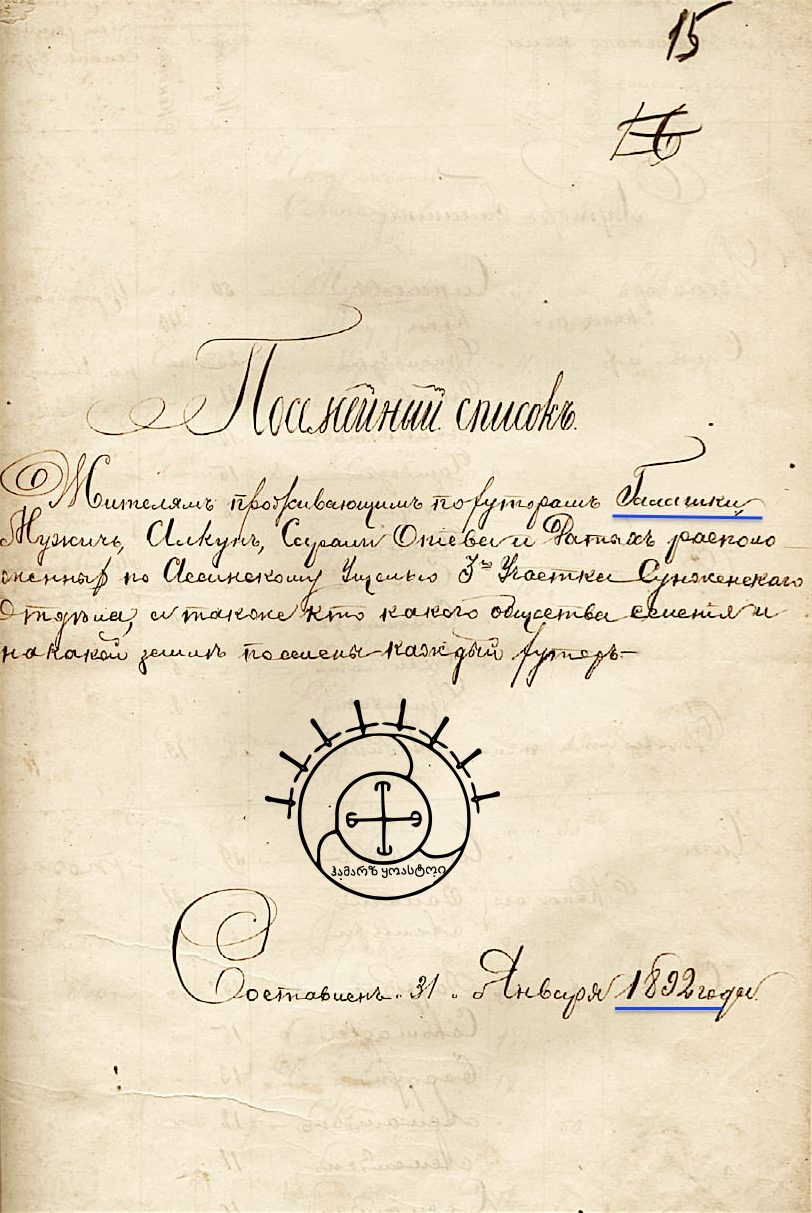 15
16
Посемейный списокъ.
Жителямъ проживающимъ по хуторамъ Галашки,
Мужичь, Алкунъ, Датыхъ располо
женныхъ по Ассинскому Ущелью 3го Участка Сунженскаго
Отдѣла, а также кто какого общества селенія и
на какой землѣ поселены каждый хуторъ
ჰამარზ ყოასტოი
Составленъ 31 Января 1892 года.